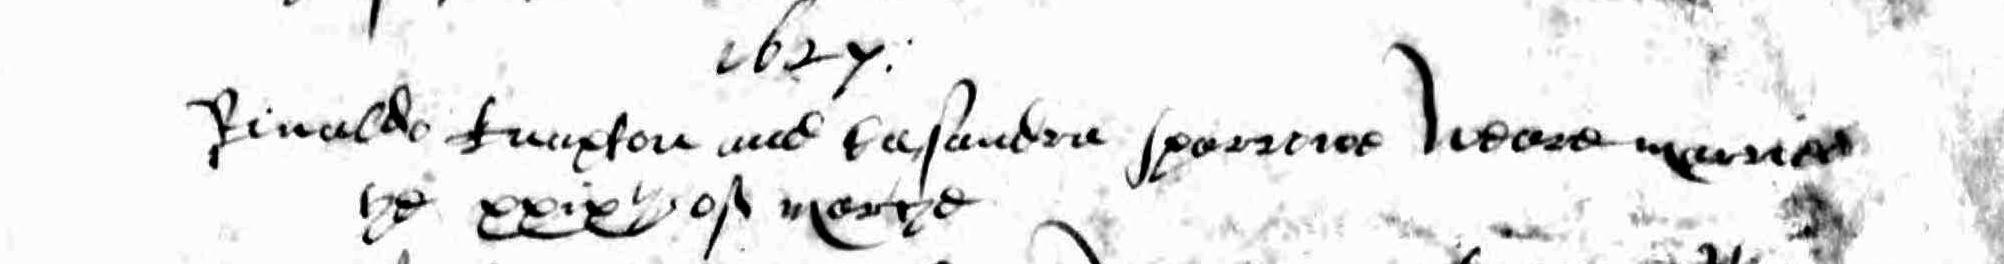 1627:
Rinaldo Knapton and Casandra Sparrowe weare married
ye xxixth of marche